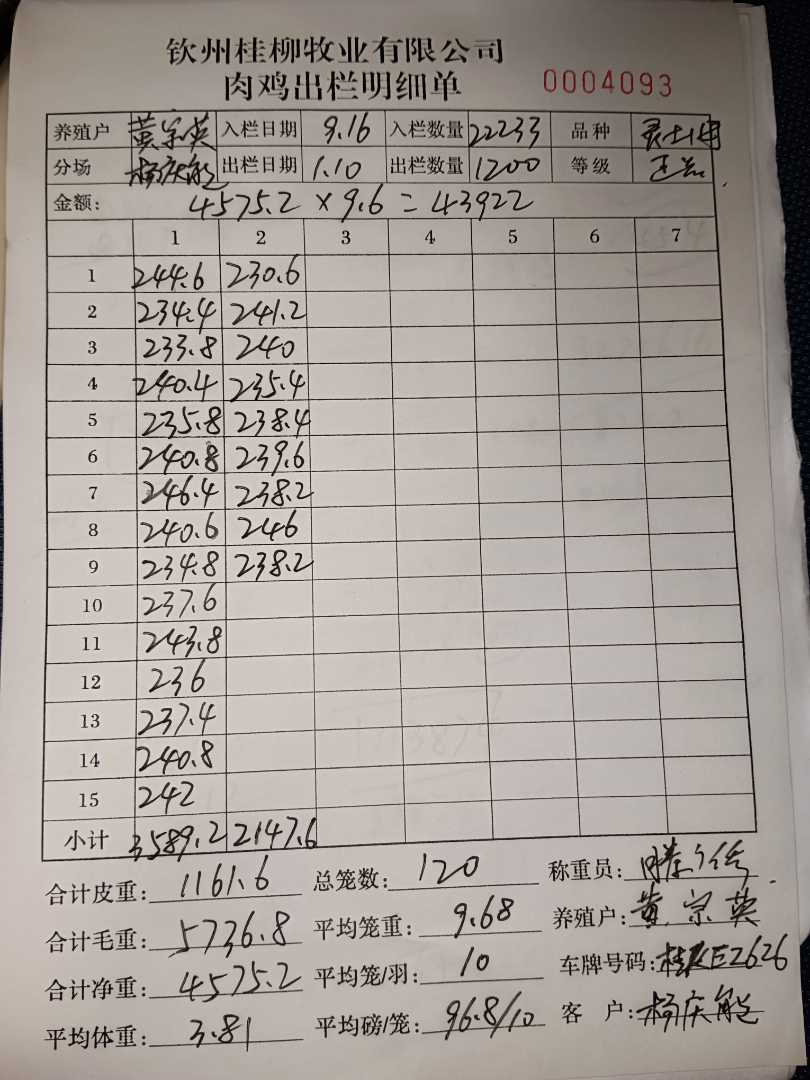 钦州桂柳牧业有限公司
肉鸡出栏明细单 0004093
养殖户 黄宗英 入栏日期 9.16 入栏数量 22233 品种
分场 杨庆能 出栏日期 1.10 出栏数量 1200 等级
金额: 4575.2 × 9.6 = 43922
1 2 3 4 5 6 7
1 244.6 230.6
2 234.4 241.2
3 233.8 240
4 240.4 235.4
5 235.8 238.4
6 240.8 239.6
7 246.4 238.2
8 240.6 246
9 234.8 238.2
10 237.6
11 243.8
12 236
13 237.4
14 240.8
15 242
小计 3589.2 2147.6
合计皮重: 1161.6 总笼数: 120 称重员:
合计毛重: 5736.8 平均笼重: 9.68 养殖户: 黄宗英
合计净重: 4575.2 平均笼/羽: 10 车牌号码: 桂KE2626
平均体重: 3.81 平均磅/笼: 96.8/10 客 户: 杨庆能